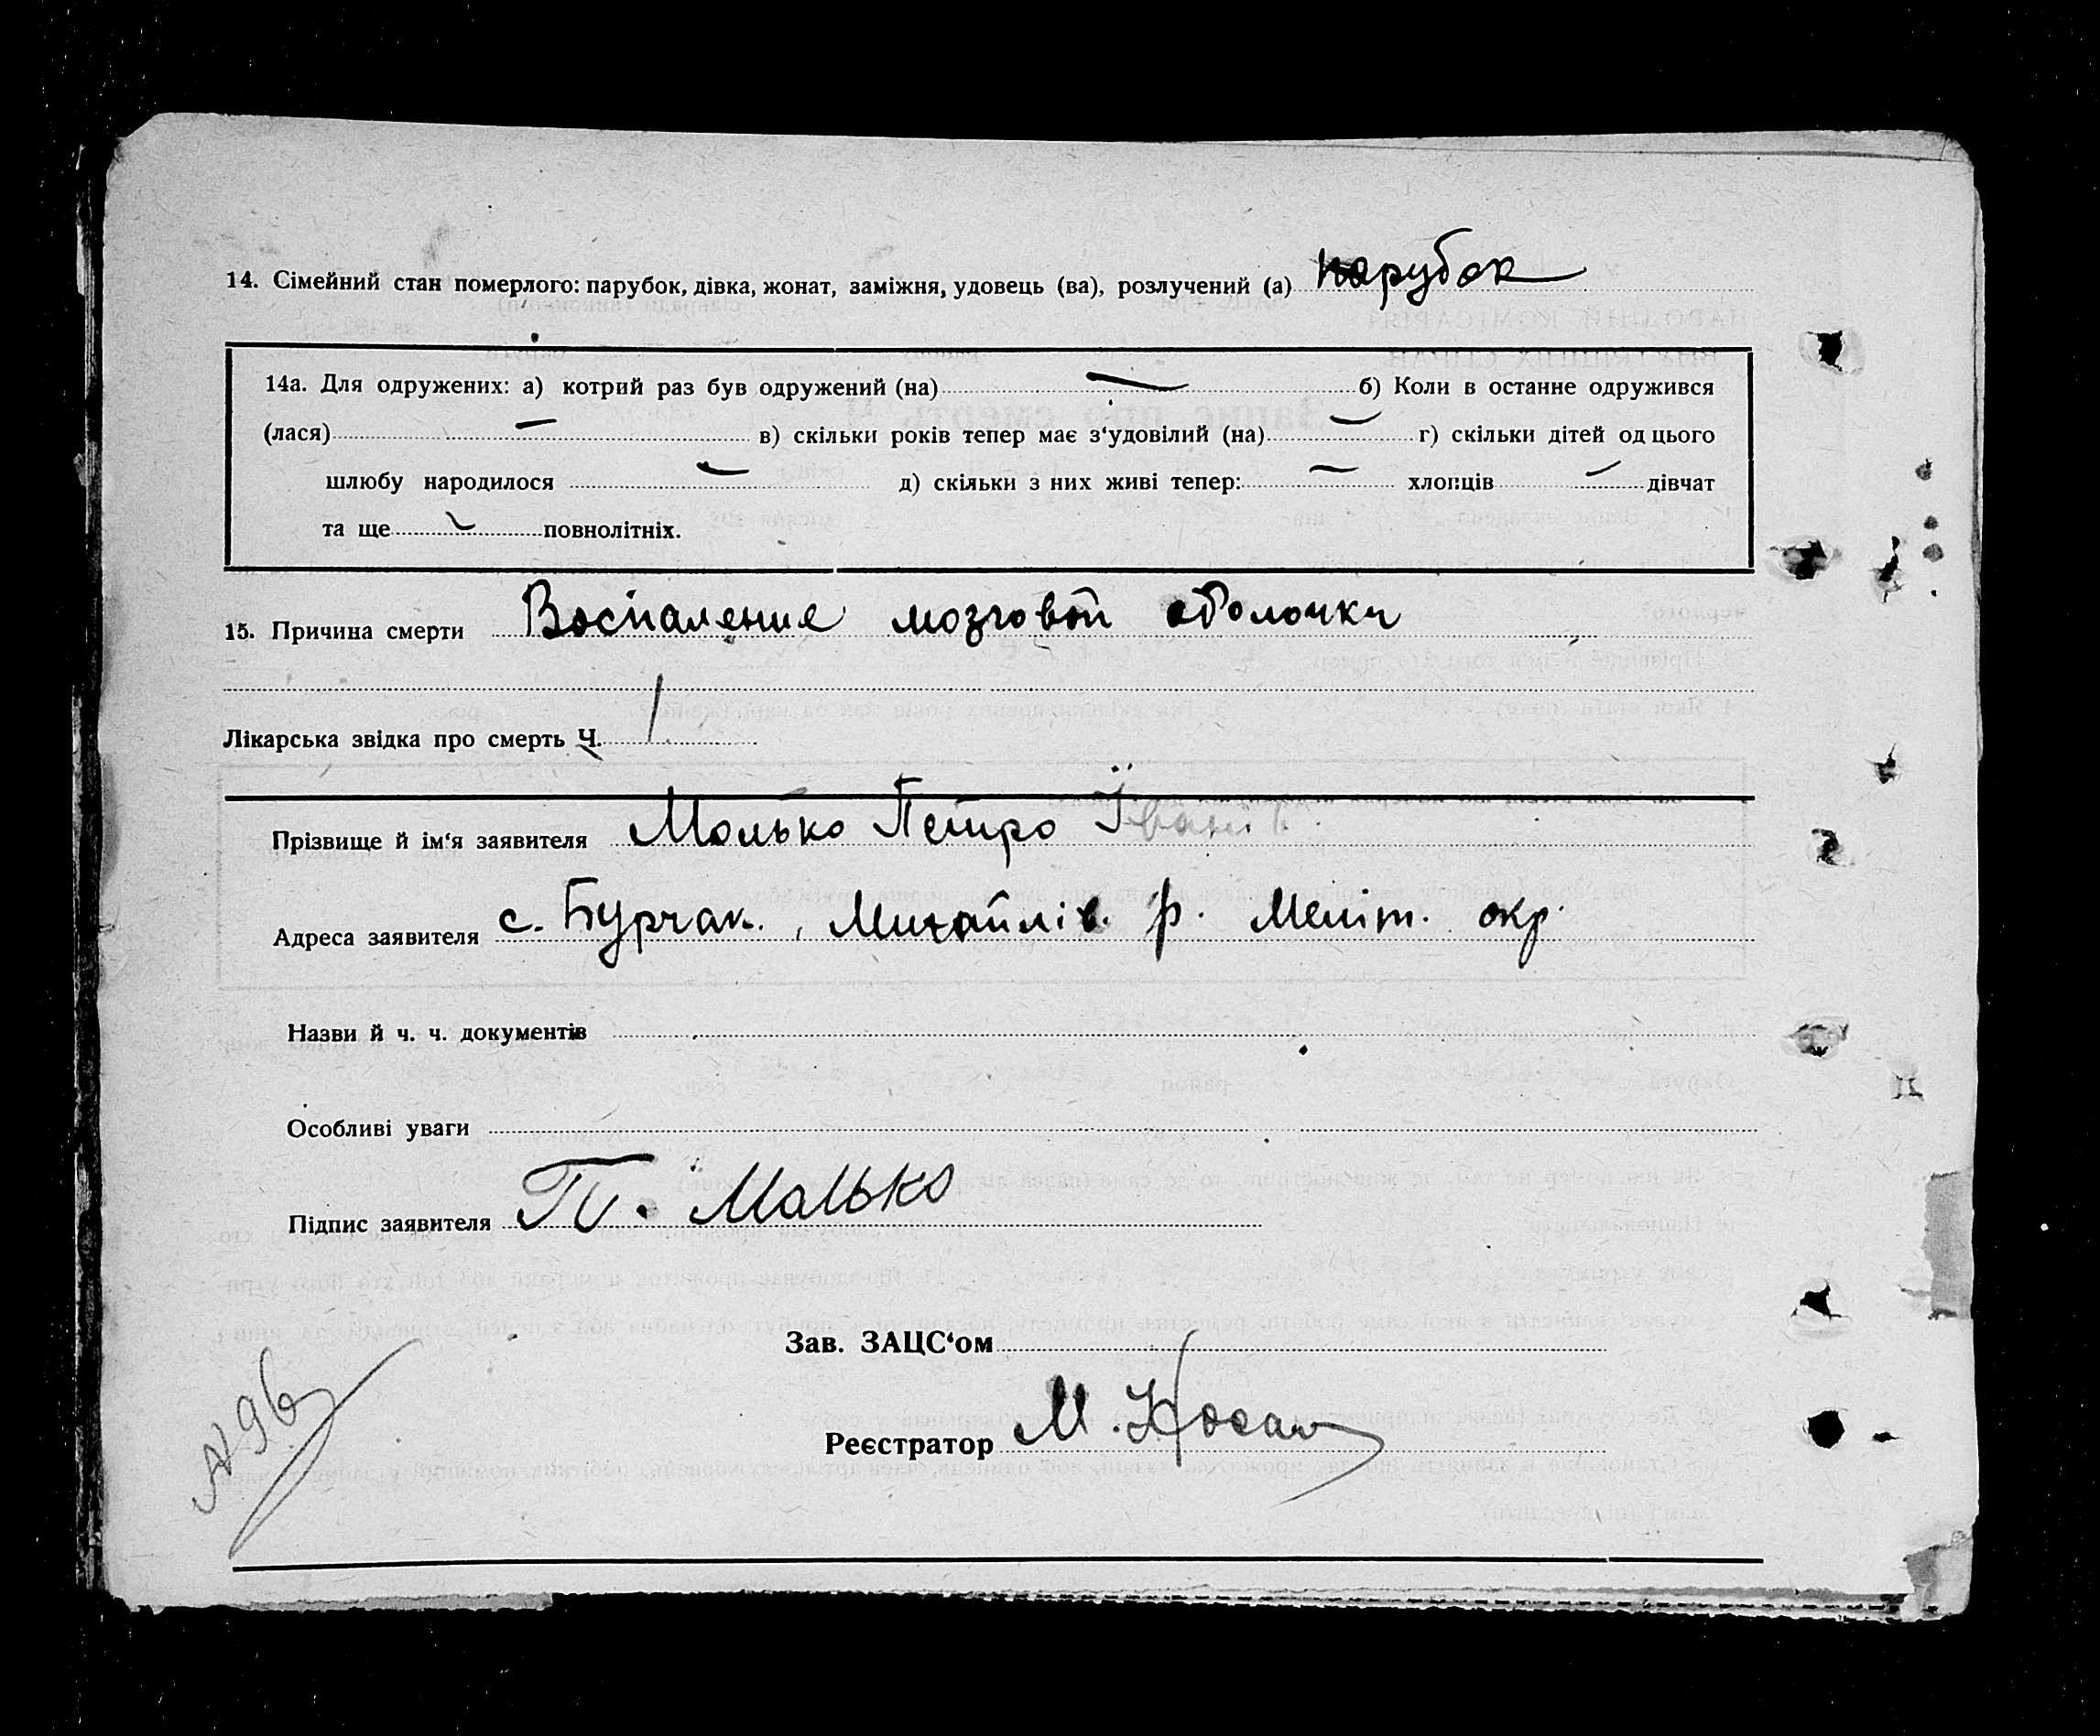 14. Сімейний стан померлого: парубок, дівка, жонат, заміжня, удовець (ва), розлучений (а) парубок
14а. Для одружених: а) котрий раз був одружений (на) — б) Коли в останнє одружився
(лася) — в) скільки років тепер має з‘удовілий (на) — г) скільки дітей од цього
шлюбу народилося — д) скільки з них живі тепер: — хлопців — дівчат
та ще — повнолітніх.
15. Причина смерти Воспаление мозговой оболочки
Лікарська звідка про смерть Ч. /
Прізвище й ім‘я заявителя Малько Петро Іван
Адреса заявителя с. Бурчак., Михайлів. р. Меліт. окр.
Назви й ч. ч. документів
Особливі уваги
Підпис заявителя П. Малько
Зав. ЗАЦС‘ом
Реєстратор М.
№ 96